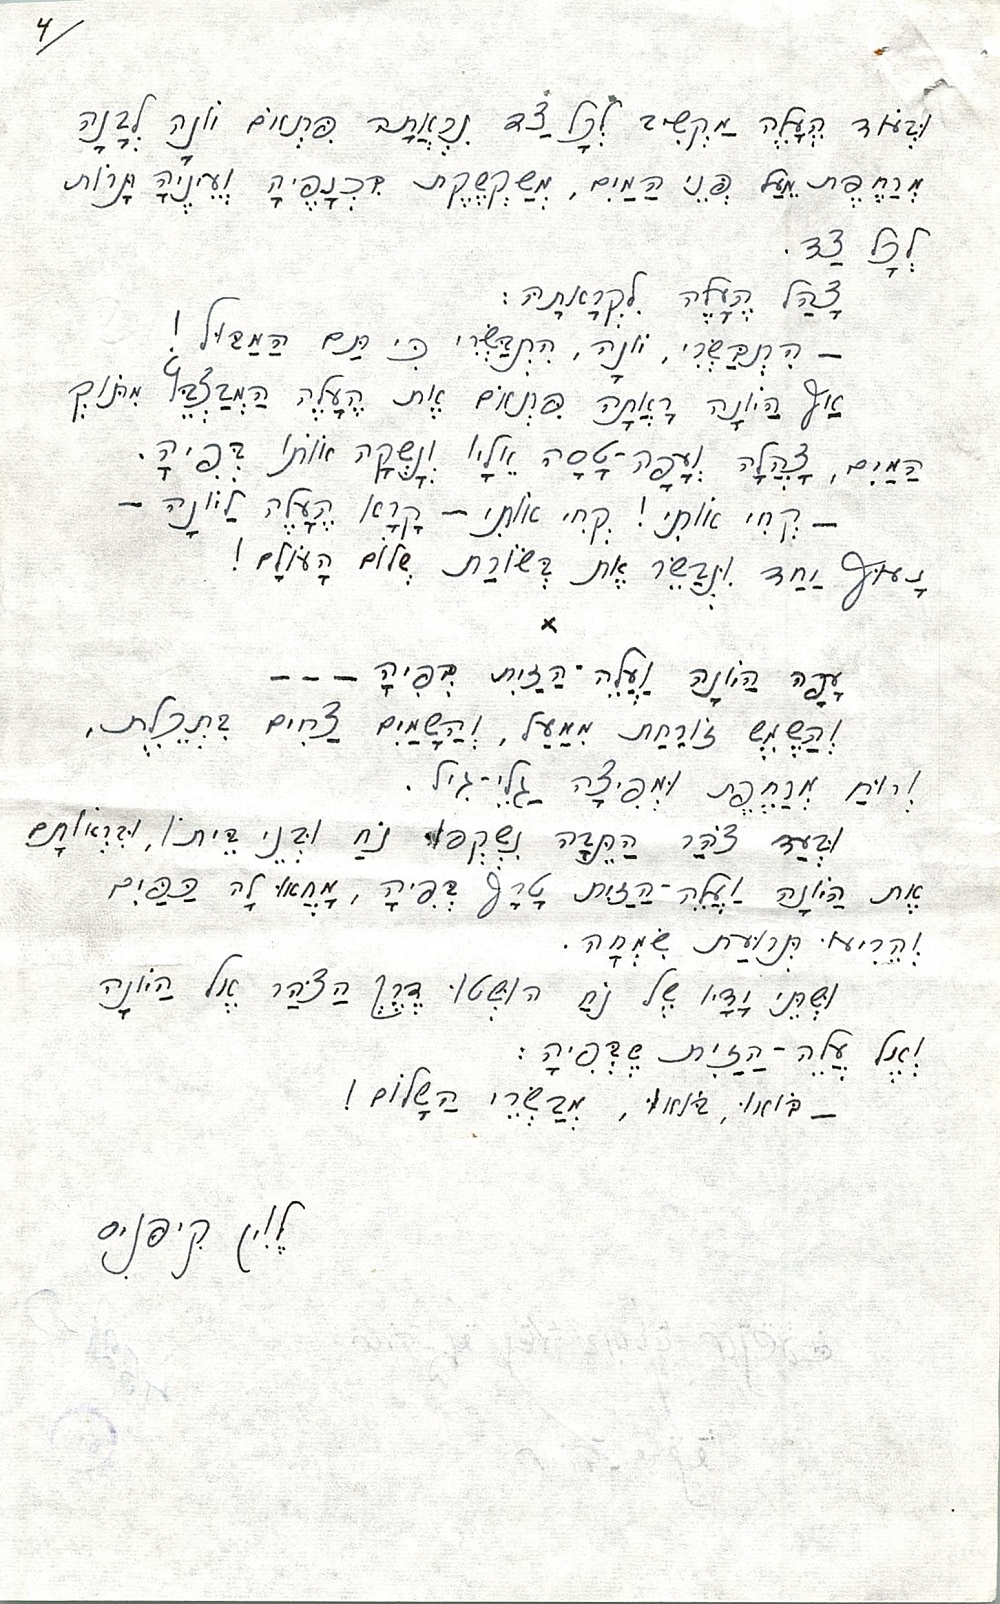 4/
וּבְעוֹד הֶעָלֶה מַקְשִׁיב לְכָל צַד נִרְאֲתָה פִּתְאֹם יוֹנָה לְבָנָה
מְרַחֶפֶת מֵעַל פְּנֵי הַמַּיִם, מְשַׁקְשֶׁקֶת בִּכְנָפֶיהָ וְעֵינֶיהָ תָּרוֹת
לְכָל צַד.
צָהַל הֶעָלֶה לִקְרָאתָהּ:
– הִתְבַּשְּׂרִי, יוֹנָה, הִתְבַּשְּׂרִי כִּי תַּם הַמַּבּוּל!
אַף הַיּוֹנָה רָאֲתָה פִּתְאֹם אֶת הֶעָלֶה הַמְבַצְבֵּץ מִתּוֹךְ
הַמַּיִם, צָהֲלָה וְעָפָה-טָסָה אֵלָיו וְנָשְׁקָה אוֹתוֹ בְּפִיהָ.
– קְחִי אוֹתִי! קְחִי אוֹתִי – קָרָא הֶעָלֶה לַיּוֹנָה –
נָעוּף יַחַד וּנְבַשֵּׂר אֶת בְּשׂוֹרַת שְׁלוֹם הָעוֹלָם!
x
עָפָה הַיּוֹנָה וַעֲלֵה-הַזַּיִת בְּפִיהָ – – –
וְהַשֶּׁמֶשׁ זוֹרַחַת מִמַּעַל, וְהַשָּׁמַיִם צַחִים בִּתְכֵלֶת,
וְרוּחַ מְרַחֶפֶת וּמְפִיצָה גַּלֵּי-גִיל.
וּבְעַד צֹהַר הַתֵּבָה נִשְׁקְפוּ נֹחַ וּבְנֵי בֵּיתוֹ, וּבִרְאוֹתָם
אֶת הַיּוֹנָה וַעֲלֵה-הַזַּיִת טָרָף בְּפִיהָ, מָחֲאוּ לָהּ כַּפַּיִם
וְהֵרִיעוּ תְּרוּעַת שִׂמְחָה.
וּשְׁתֵּי יָדָיו שֶׁל נֹחַ הוּשְׁטוּ דֶּרֶךְ הַצֹּהַר אֶל הַיּוֹנָה
וְאֶל עֲלֵה-הַזַּיִת שֶׁבְּפִיהָ:
– בּוֹאוּ, בּוֹאוּ, מְבַשְּׂרֵי הַשָּׁלוֹם!
לֶוִין קִיפְּנִיס